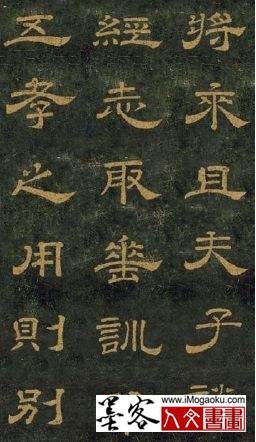 將來且夫子談
經志取垂訓
五孝之用則別
墨客
www.iMogaoku.com
人文書畫